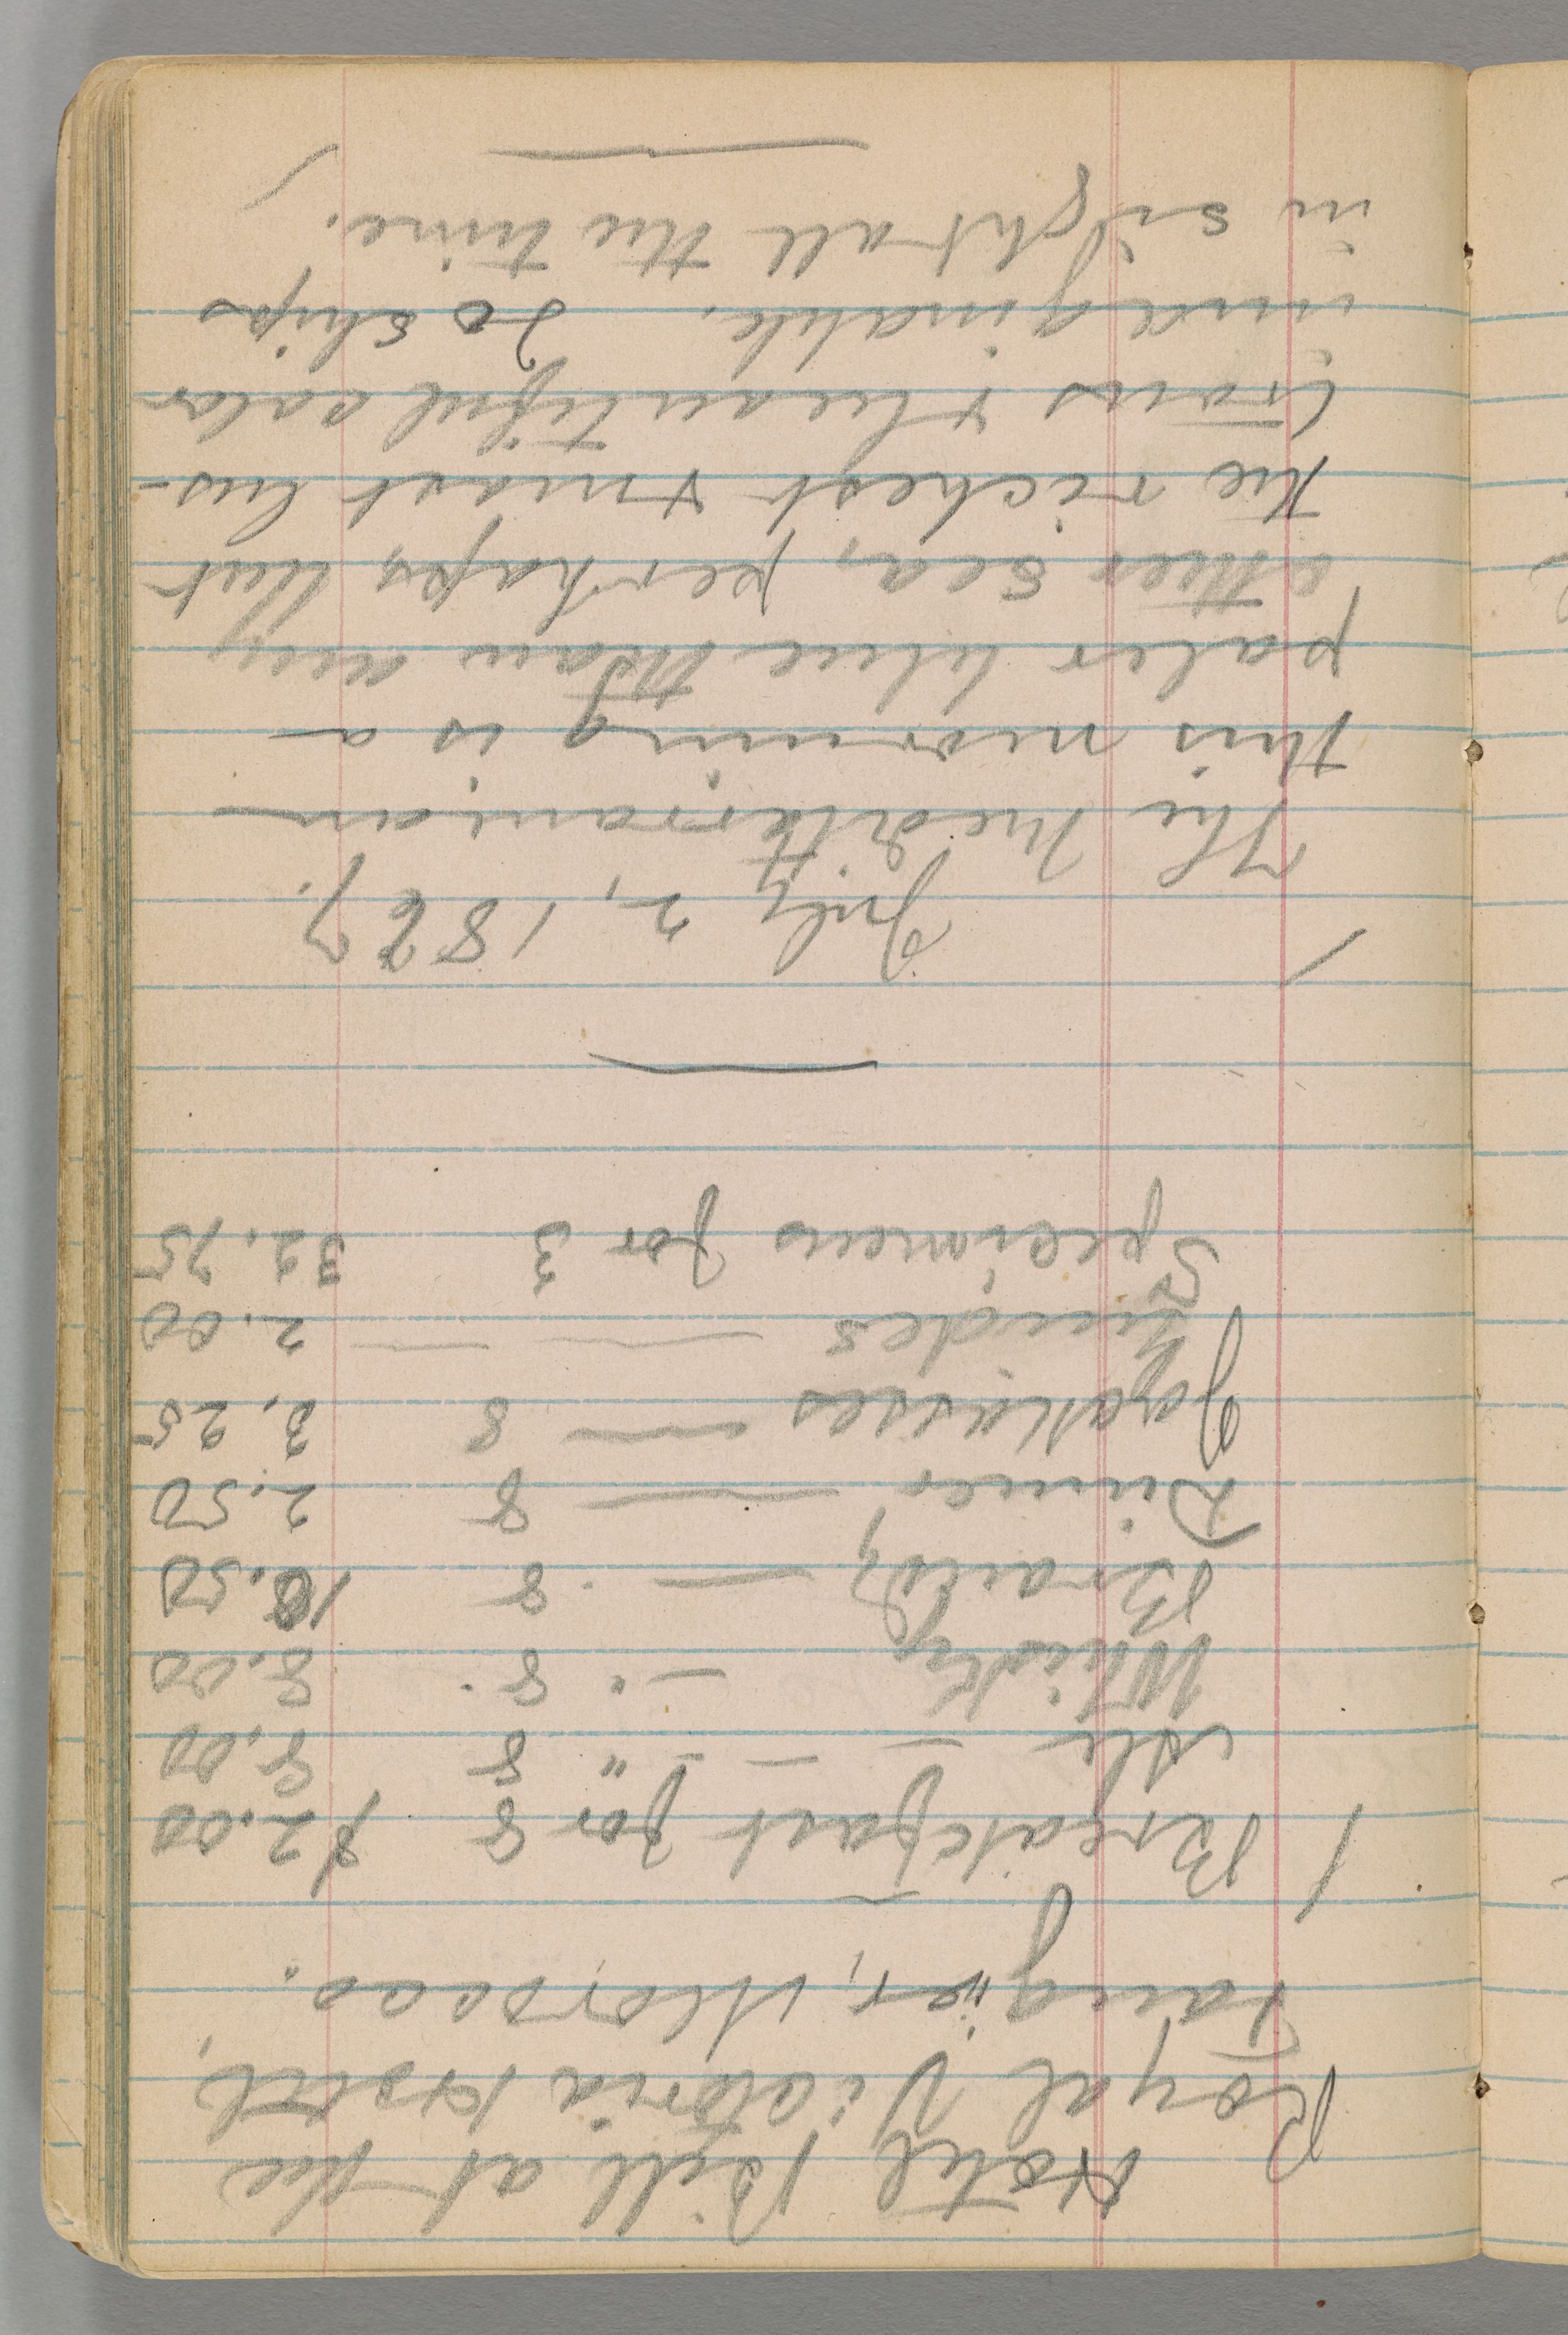 Hotel Bill at the
Royal Victoria Hotel,
Tangier, Morocco.
Breakfast for 8 $2.00
Ale — — " 8 8.00
Whisky — " 8. 8.00
Brandy — . 8 10.50
Dinner — 8 2.50
Jackasses — 8 3.25
Guides — — 2.00
Specimens for 3 32.75
July 2, 1867.
The Mediterranian
this morning is a
paler blue than any
other sea, perhaps, but
the richest & most lus-
trous & beautiful color
imaginable. 20 ships
in sight all the time.